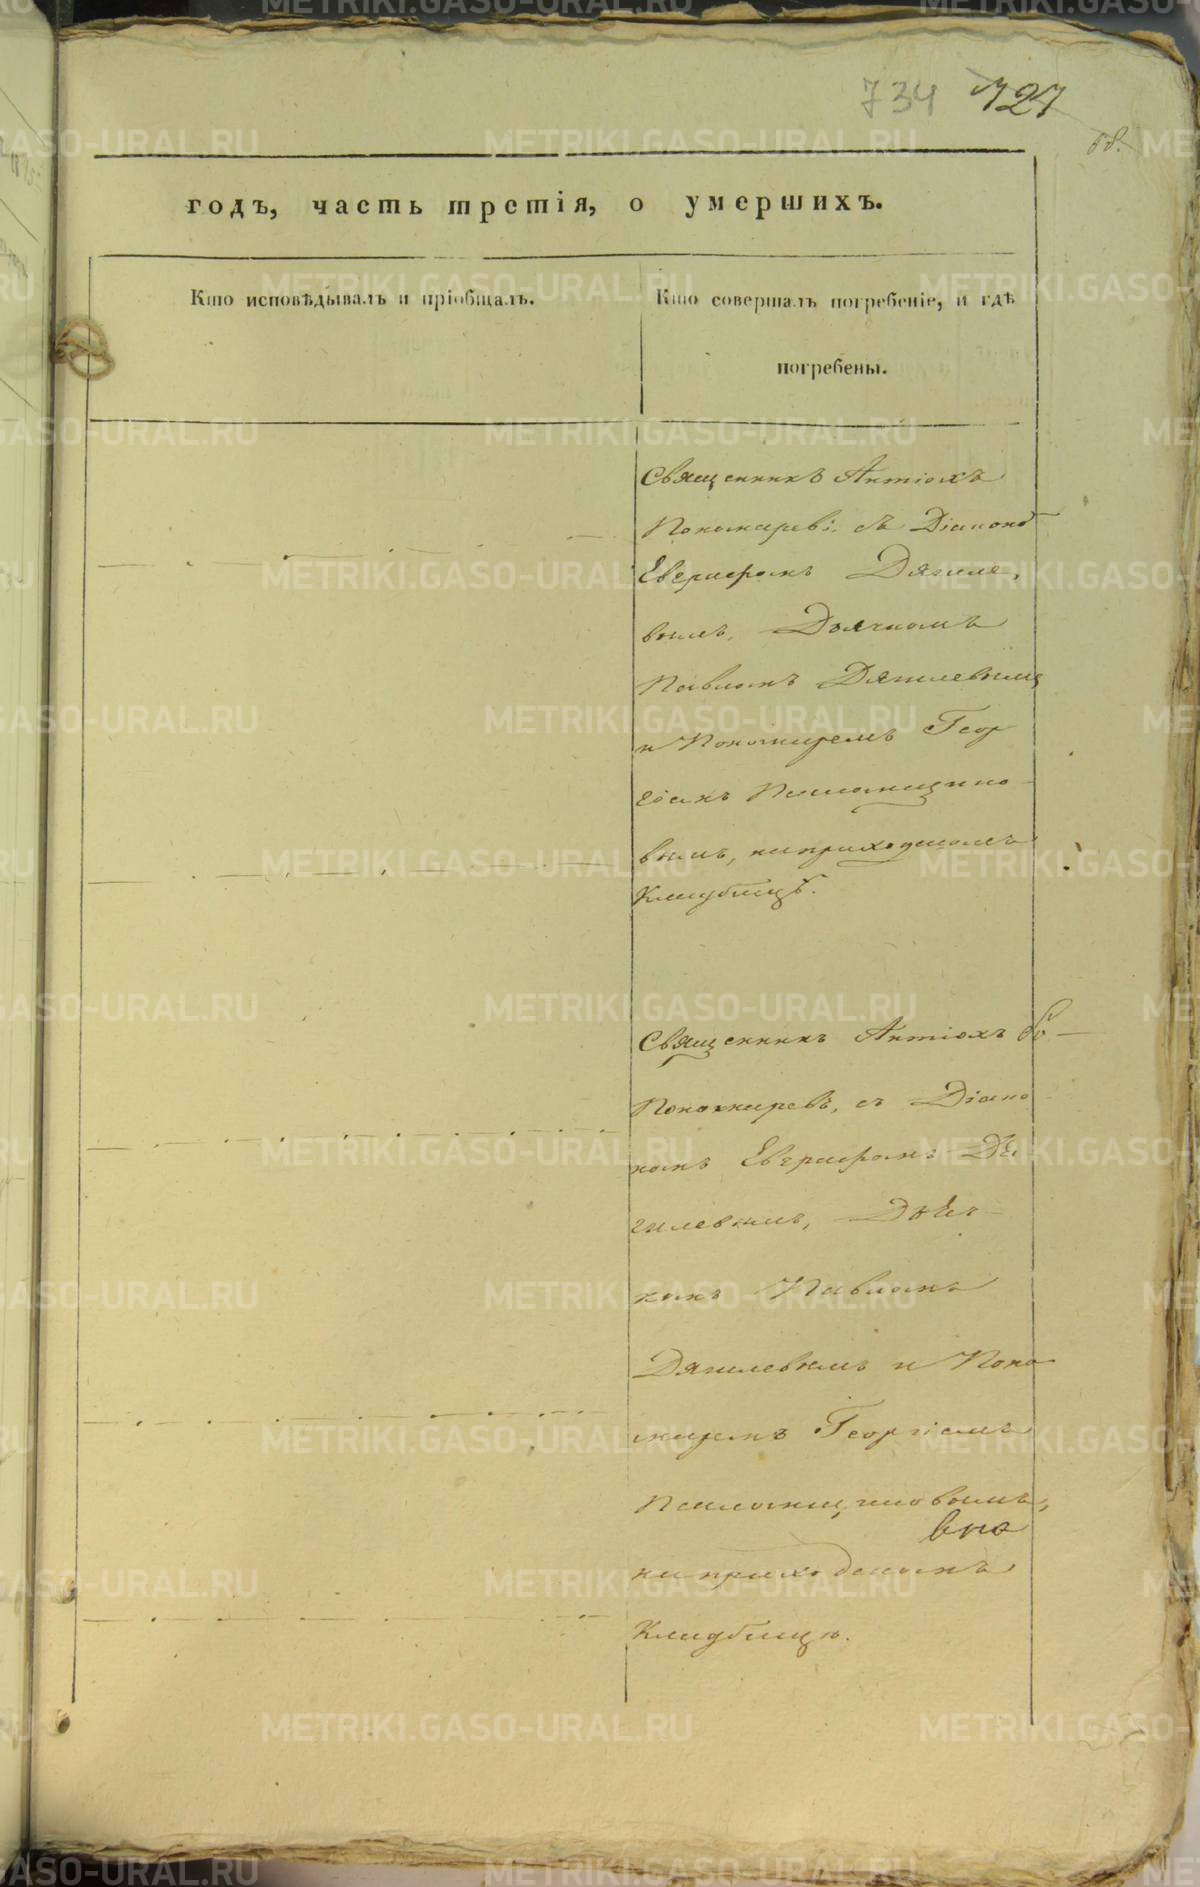 734 727
68.
годъ, часть третія, о умершихъ.
Кто исповѣдывалъ и пріобщалъ.
Кто совершалъ погребеніе, и гдѣ
погребены.
Священникъ Антіохъ
Пономаревъ съ Діакономъ
Дягиле
вымъ, Дьячкомъ
Павломъ Дягилевымъ
и Пономаремъ Геор
гіемъ
вымъ, на приходскомъ
Кладбищѣ.
Священникъ Антіохъ
Пономаревъ, съ Діако
номъ Дя
гилевымъ, Дьяч
комъ Павломъ
Дягилевымъ и Поно
маремъ Георгіемъ
на приходскомъ
Кладбищѣ.
METRIKI.GASO-URAL.RU